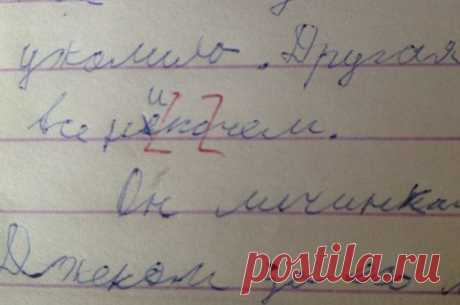 ужалило. Другая
все нипочем.
Он личинка
Джеком за его
postila.ru